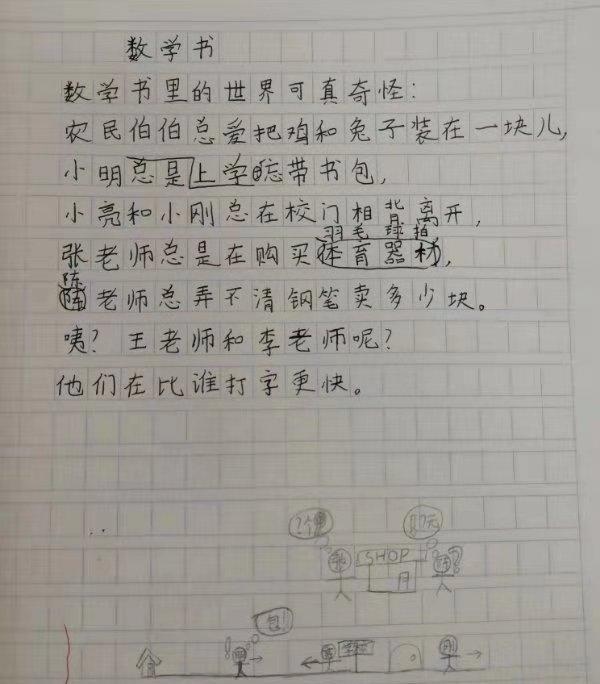 数学书
数学书里的世界可真奇怪：
农民伯伯总爱把鸡和兔子装在一块儿，
小明总是上学忘带书包，
小亮和小刚总在校门相背离开，
羽毛球拍
张老师总是在购买体育器材，
陈
老师总弄不清钢笔卖多少块。
咦？王老师和李老师呢？
他们在比谁打字更快。
SHOP
包!